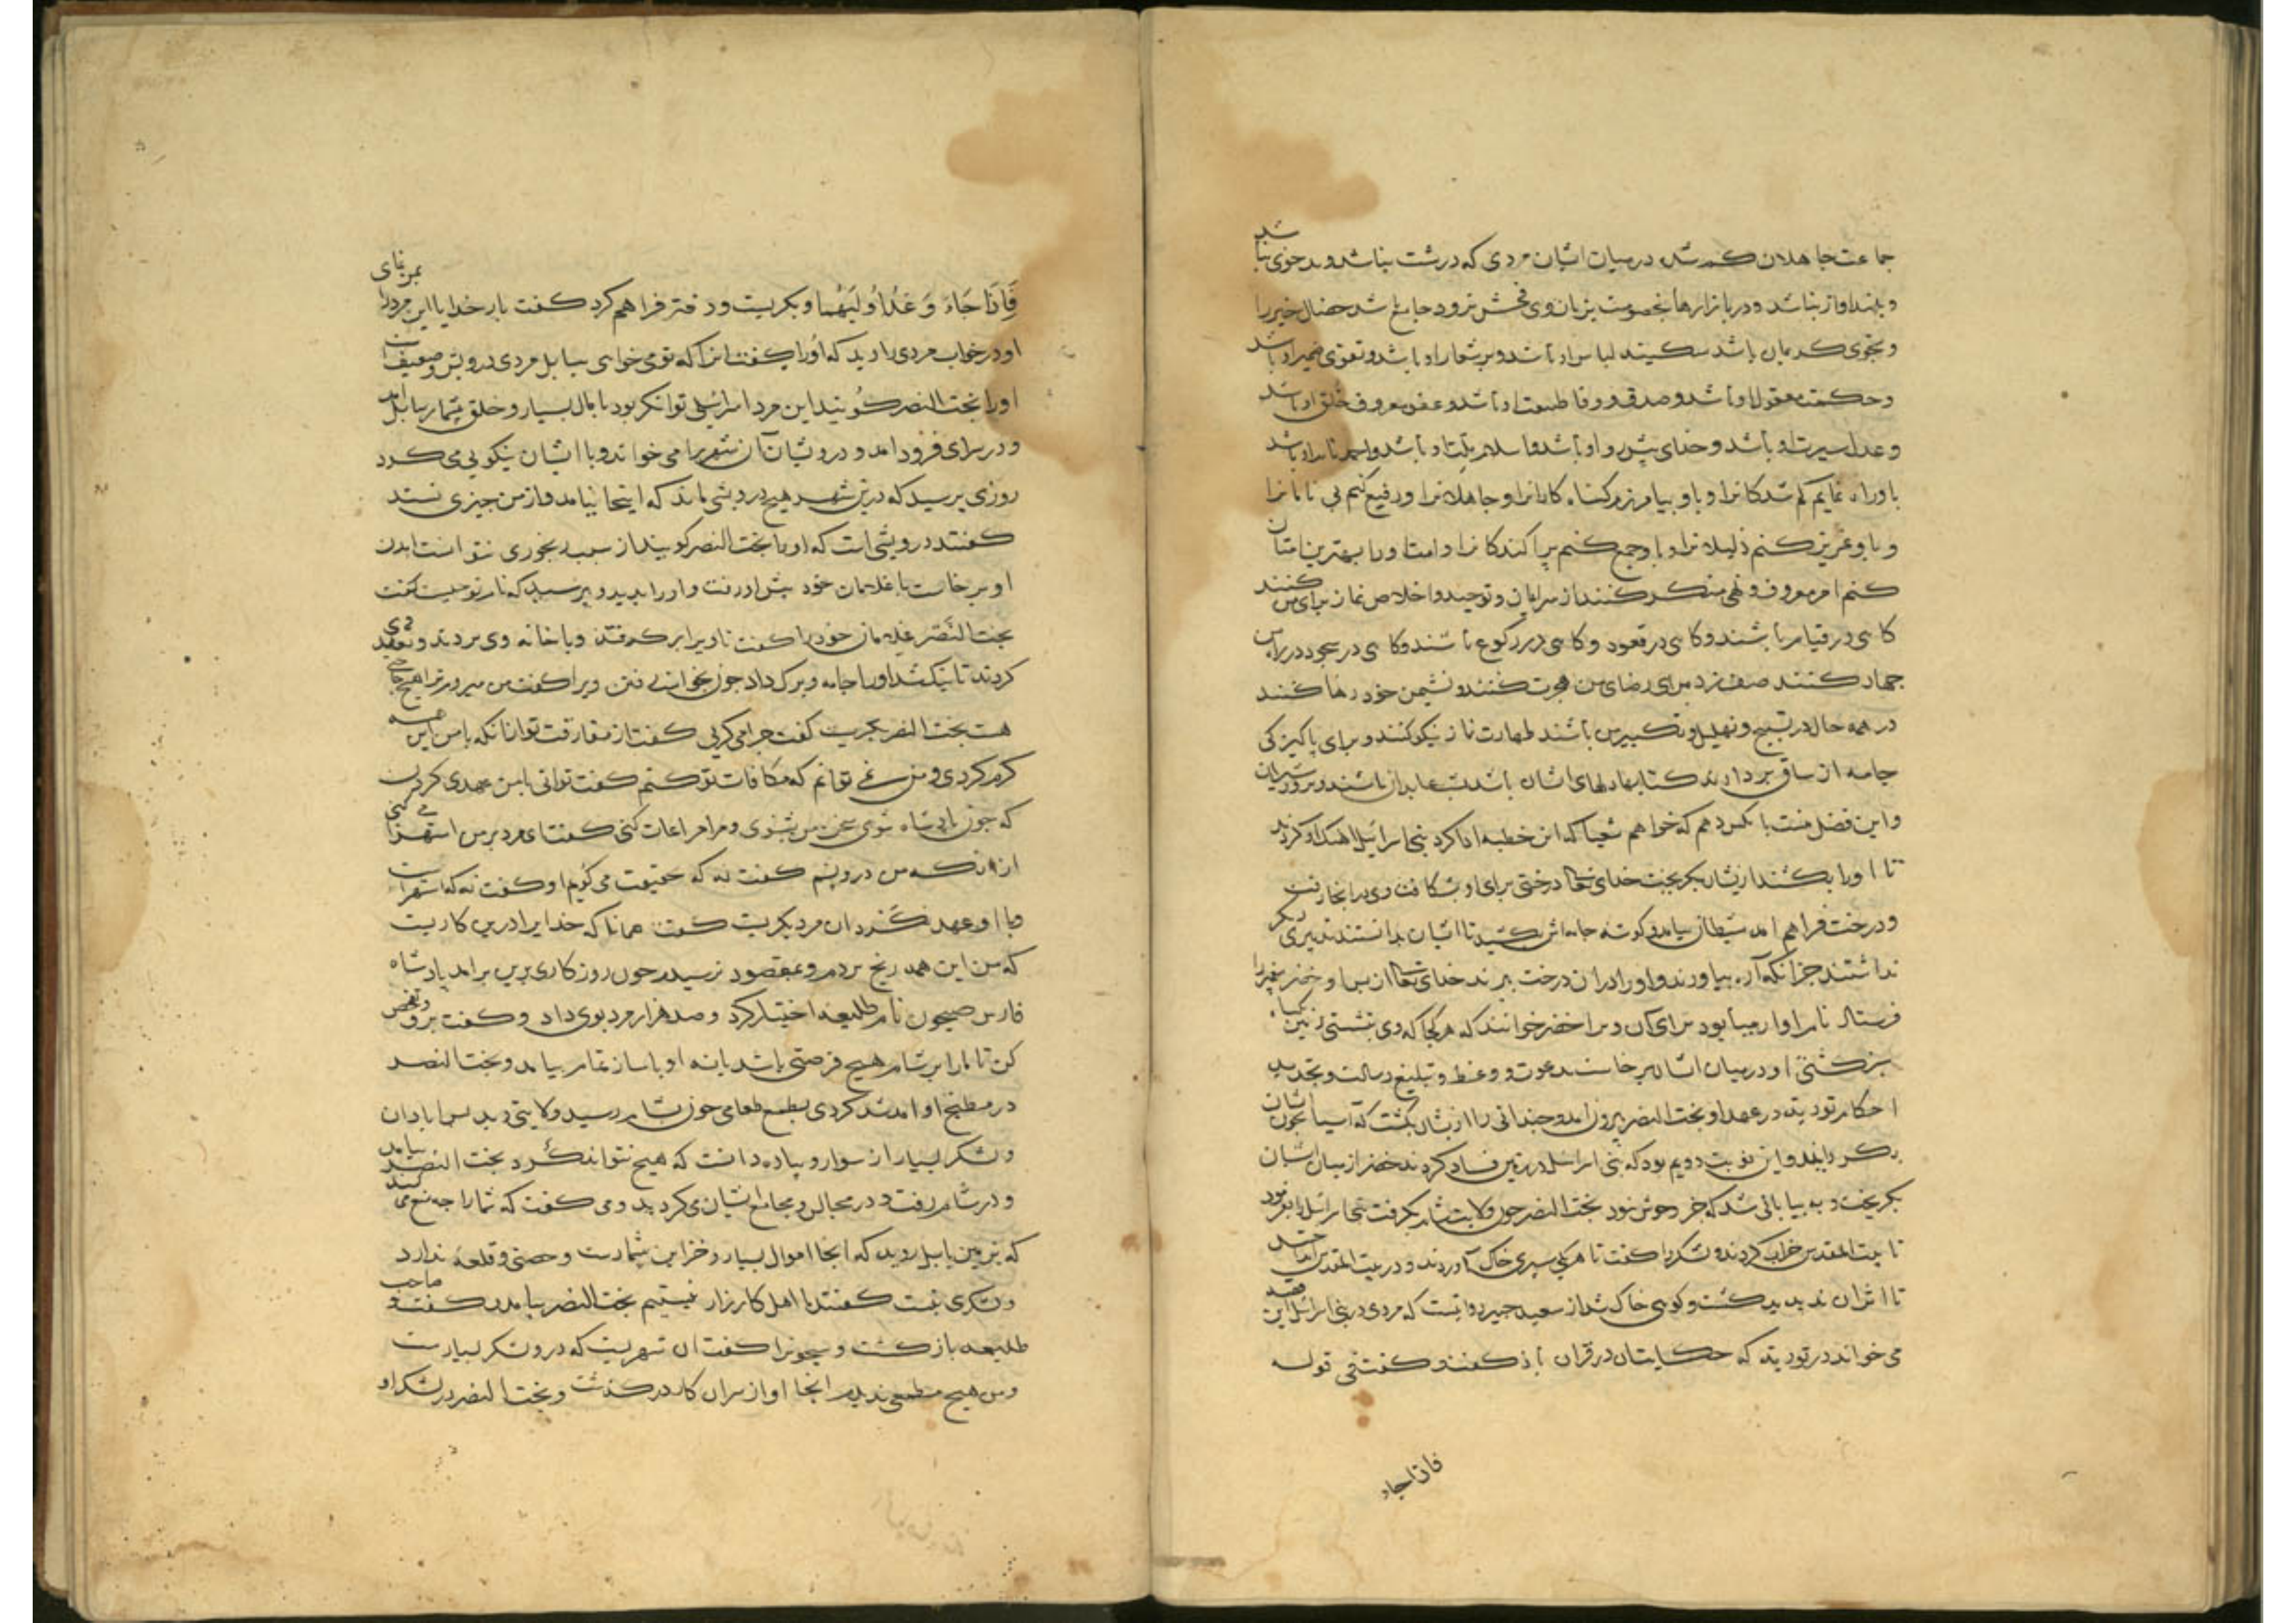 جماعت جاهلان کم شده درمیان ایشان مردی که درشت نباشد و بدخوی نباشد
و بلند اواز نباشد و در بازارها بخصومت بزبان وی فحش نرود جامع باشد خصال خیر را
و بخوی کریمان باشد سکینه لباس او باشد و بر شعار او باشد و تقوی ضمیر او باشد
و حکمت معقول او باشد و صدق و وفا طبیعت او باشد و عفو و معروف خلق او باشد
و عدل سیرت او باشد و خدای پیش رو او باشد و اسلام ملت او باشد و احمد نام او باشد
باو راه نمایم کم شدکانرا و باو بیامرزم کناه کارانرا و جاهلانرا و رفیع کنم بی نامانرا
و باو عزیز کنم ذلیلانرا و باو جمع کنم پراکندکانرا و امت او را بهترین امتان
کنم امر معروف و نهی منکر کنند از سر ایمان و توحید و اخلاص نماز برای من کنند
کاهی در قیام باشند و کاهی در قعود و کاهی در رکوع باشند و کاهی در سجود در راه من
جهاد کنند صف زده برای رضای من هجرت کنند و نشیمن خود رها کنند
در همه حال در تسبیح و تهلیل و تکبیر من باشند طهارت نماز نیکو کنند و برای پاکیزکی
جامه از ساق بردارند کتابها در دلهای ایشان باشد بشب عابدان باشند و بروز شیران
و این فضل منست بانکس دهم که خواهم شعیا که این خطبه ادا کرد بنی اسرائیل اهنک او کردند
تا اورا بکشند از یشان بکریخت خدای تعالی درختی برای او بشکافت وی در انجا رفت
و درخت فراهم امد شیطان بیامد و کوشه جامه اش بکشید تا ایشان بدانستند تدبیری دیکر
نداشتند جز انکه آره بیاوردند و اورا در ان درخت ببریدند خدای تعالی از پس او خضر پیغمبر را
فرستاد نام او ارمیا بود برای آن ویرا خضر خوانند که هرکجا که وی بنشستی زمین کیاه
سبز کشتی او درمیان ایشان برخاست بدعوت و وعظ و تبلیغ رسالت و تجدید
احکام توریته در عهد او بخت النصر بیرون امد و چندانی را از یشان بکشت که آسیا بخون شان
بکردانید و این نوبت دویم بود که بنی اسرائیل در زمین فساد کردند خضر از میان ایشان
بکریخت و به بیابانی شد که جز وحوش نبود بخت النصر چون ولایت شام بکرفت بنی اسرائیل را بفرمود
تا بیت المقدس خراب کردند و لشکر را کفت تا هر یکی سپری خاک آوردند و در بیت المقدس انداختند
تا اثر ان ندید و کوهی خاک شد از سعید جبیر روایتست که مردی در بنی اسرائیل این قصه
می خواند در توریته که حکایتشان در قران باز کفت و کفت فی قوله
فاذا جاء
فَاِذَا جَاءَ وَعْدُ اُولیٰهُما و بکریست و دفتر فراهم کرد کفت بار خدایا این مرد را بمن نمای
او در خواب مردی را دید که او را کفت انرا که تو می خواهی ببابل مردی درویش و ضعیف است
او را بخت النصر کویند این مرد اسرائیلی توانکر بود با مال بسیار و خلق بیشمار ببابل امد
و در سرای فرود امد و درویشان آن شهر را می خواند و با ایشان نیکویی می کرد
روزی پرسید که درین شهر هیچ درویشی ماند که اینجا نیامد و از من چیزی نستد
کفتند درویشی است که او را بخت النصر کویند از سبب رنجوری نتوانست امدن
او برخاست با غلامان خود پیش او رفت و او را بدید و پرسید که نام تو چیست کفت
بخت النصر غلامان خود را کفت تا ویرا برکرفتند و با خانه وی بردند و تعهد می
کردند تا نیک شد او را جامه و برک داد چون بخواست رفتن ویرا کفت من میروم ترا هیچ حاجتی
هست بخت النصر بکریست کفت چرا می کریی کفت از مفارقت تو از انکه با من این همه
کرم کردی و من نمی توانم که مکافات تو کنم کفت توانی با من عهدی کردن
که چون پادشاه شوی سخن من بشنوی و مرا مراعات کنی کفت ای مرد بر من استهزا می کنی
از انکه من درویشم کفت نه که حقیقت می کویم او کفت نه که استهزا است
و با او عهد نکرد ان مرد بکریست کفت همانا که خدایرا درین کاریست
که من این همه رنج بردم و بمقصود نرسیدم چون روزکاری برین برامد پادشاه
فارس صیحون نام طلیعه اختیار کرد و صد هزار مرد بوی داد و کفت برو و تفحص
کن تا ما را بر شام هیچ فرصتی باشد یا نه او با ساز تمام بیامد و بخت النصر
در مطبخ او امد شد کردی بطمع طعامی چون بشام رسید ولایتی دید بس ابادان
و لشکر بسیار از سوار و پیاده دانست که هیچ نتواند کرد بخت النصر بیامد
و در شام رفت و در مجالس و مجامع ایشان می کردید و می کفت که شما را چه منع می کند
که بزمین بابل روید که انجا اموال بسیار و خزاین بیشمارست و حصنی و قلعه ندارد
و لشکری نیست کفتند ما اهل کارزار نیستیم بخت النصر بیامد و کفت و صاحب
طلیعه باز کشت و صیحون را کفت ان شهریست که درو لشکر بسیارست
و من هیچ مطمعی ندیدم انجا او از سر ان کار درکذشت و بخت النصر در لشکر او